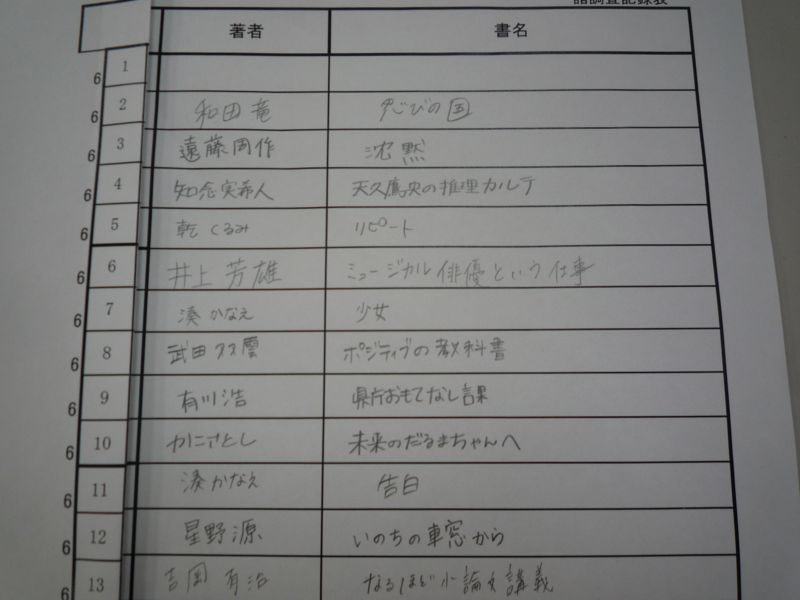 読調査記録表
著者 書名
6 1
6 2 和田竜 忍びの国
6 3 遠藤周作 沈黙
6 4 知念実希人 天久鷹央の推理カルテ
6 5 乾くるみ リピート
6 6 井上芳雄 ミュージカル俳優という仕事
6 7 湊かなえ 少女
6 8 武田双雲 ポジティブの教科書
6 9 有川浩 県庁おもてなし課
6 10 かこさとし 未来のだるまちゃんへ
6 11 湊かなえ 告白
6 12 星野源 いのちの車窓から
6 13 吉岡有治 なるほど小論文講義